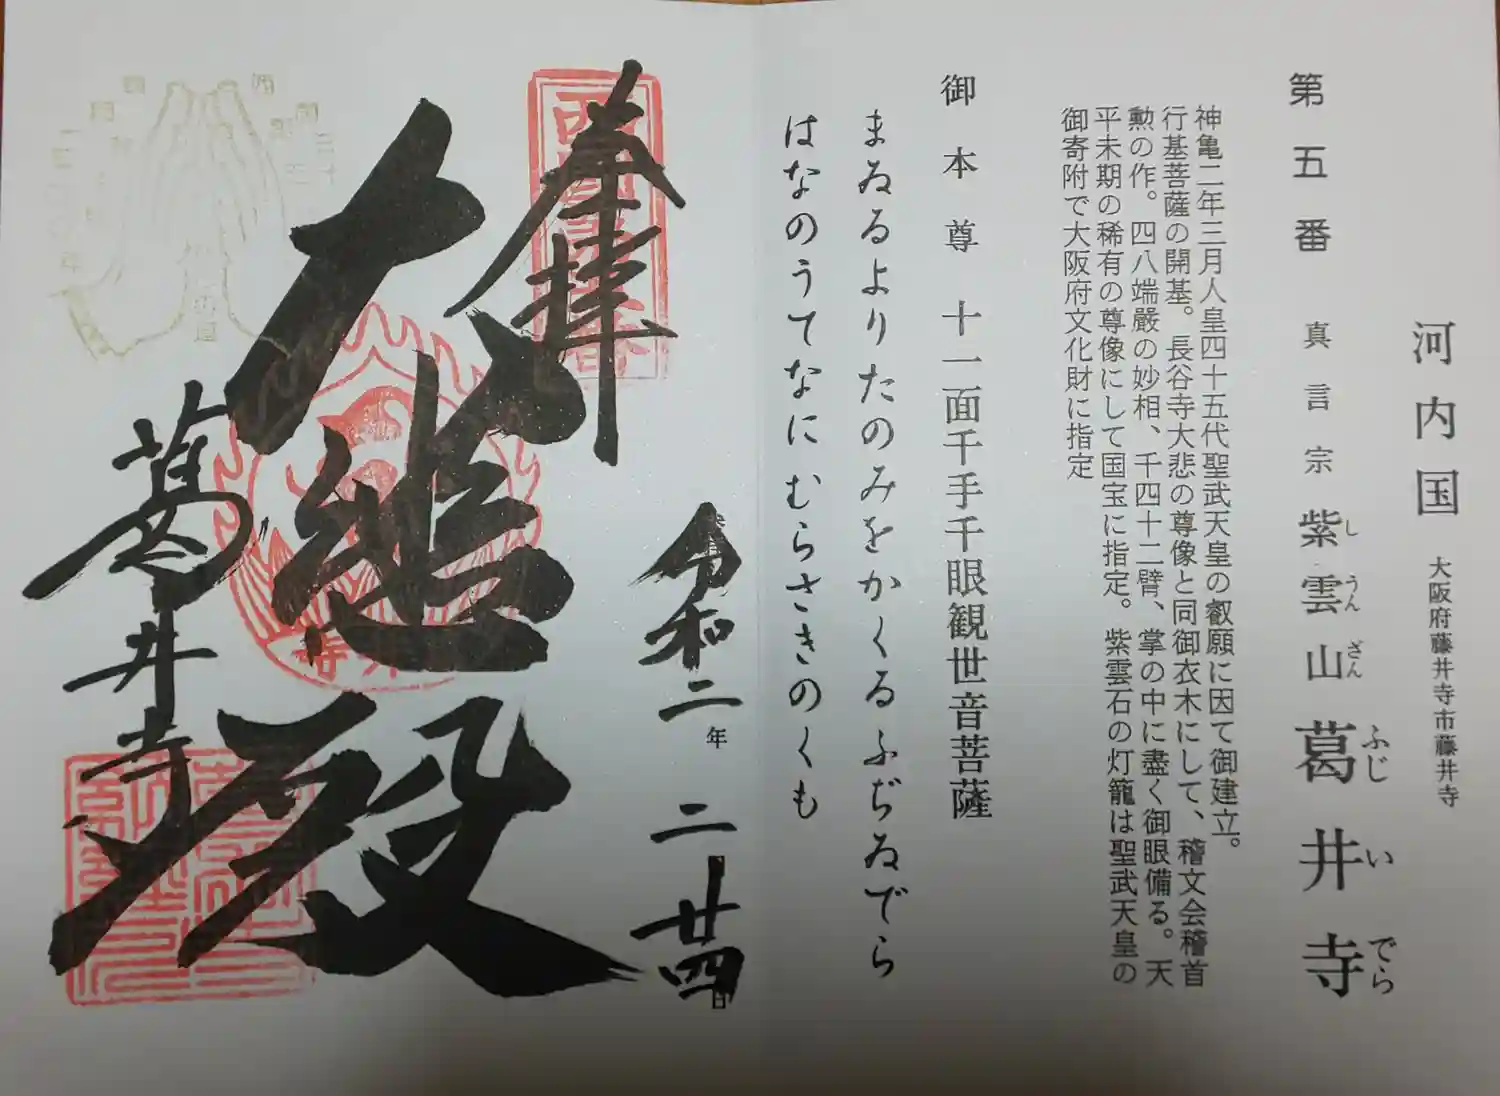 河内国 大阪府藤井寺市藤井寺
第五番 真言宗 紫雲山 葛井寺
しうんざん ふじいでら
神亀二年三月人皇四十五代聖武天皇の叡願に因て御建立。
行基菩薩の開基。長谷寺大悲の尊像と同御衣木にして、稽文会稽首
勲の作。四八端厳の妙相、千四十二臂、掌の中に盡く御眼備る。天
平未期の稀有の尊像にして国宝に指定。紫雲石の灯籠は聖武天皇の
御寄附で大阪府文化財に指定
御本尊 十一面千手千眼観世音菩薩
まゐるよりたのみをかくるふぢゐでら
はなのうてなにむらさきのくも
奉拝
令和二年 二 廿四日
大悲殿
葛井寺